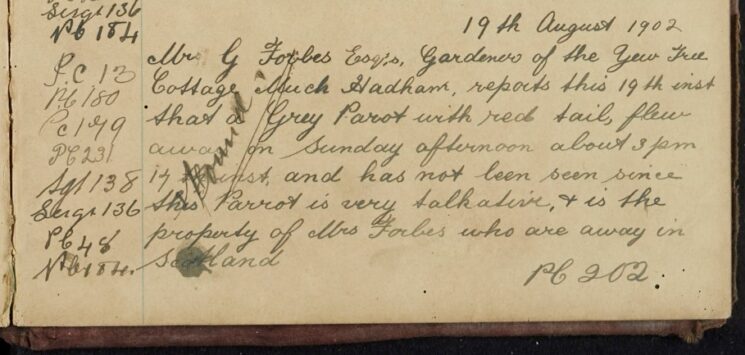 Sergt 136
Pc 184
19th August 1902
P.C 13
Pc 180
Pc 149
Pc 231
Sgt 138
Sergt 136
Pc 48
Pc 184.
Mr G Forbes Esqrs, Gardener of the Yew Tree
Cottage Much Hadham, reports this 19th inst
that a Grey Parot with red tail, flew
away on Sunday afternoon about 3 pm
17 inst, and has not been seen since
this Parrot is very talkative, & is the
property of Mrs Forbes who are away in
Scotland
Pc 202.
Found